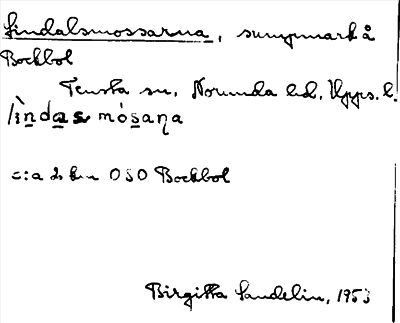 Lindalsmossarna, sumpmark å
Bockbol
Tensta sn, Norunda hd, Upps. l.
lìndas mósaṇa
c:a 2 km OSO Bockbol
Birgitta Sandelin, 1953